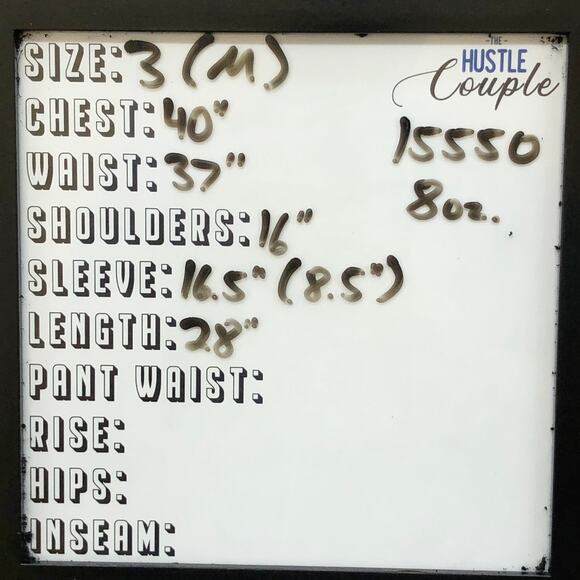 SIZE: 3 (M.)
-THE-
HUSTLE
Couple
CHEST: 40"
15550
WAIST: 37"
8oz.
SHOULDERS: 16"
SLEEVE: 16.5" (8.5")
LENGTH: 28"
PANT WAIST:
RISE:
HIPS:
INSEAM: